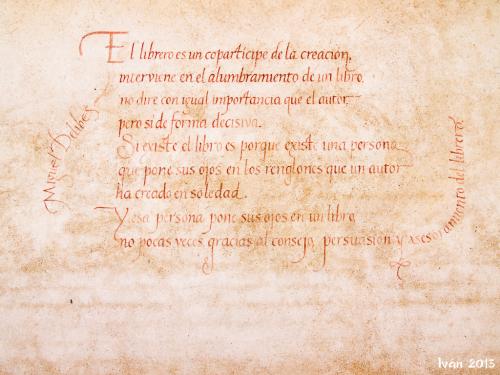 El librero es un copartícipe de la creación,
interviene en el alumbramiento de un libro,
no diré con igual importancia que el autor,
pero si de forma decisiva.
Si existe el libro es porque existe una persona
que pone sus ojos en los renglones que un autor
ha creado en soledad.
Y esa persona pone sus ojos en un libro,
no pocas veces, gracias al consejo, persuasión y asesoramiento del librero.
Miguel Delibes
Iván 2013